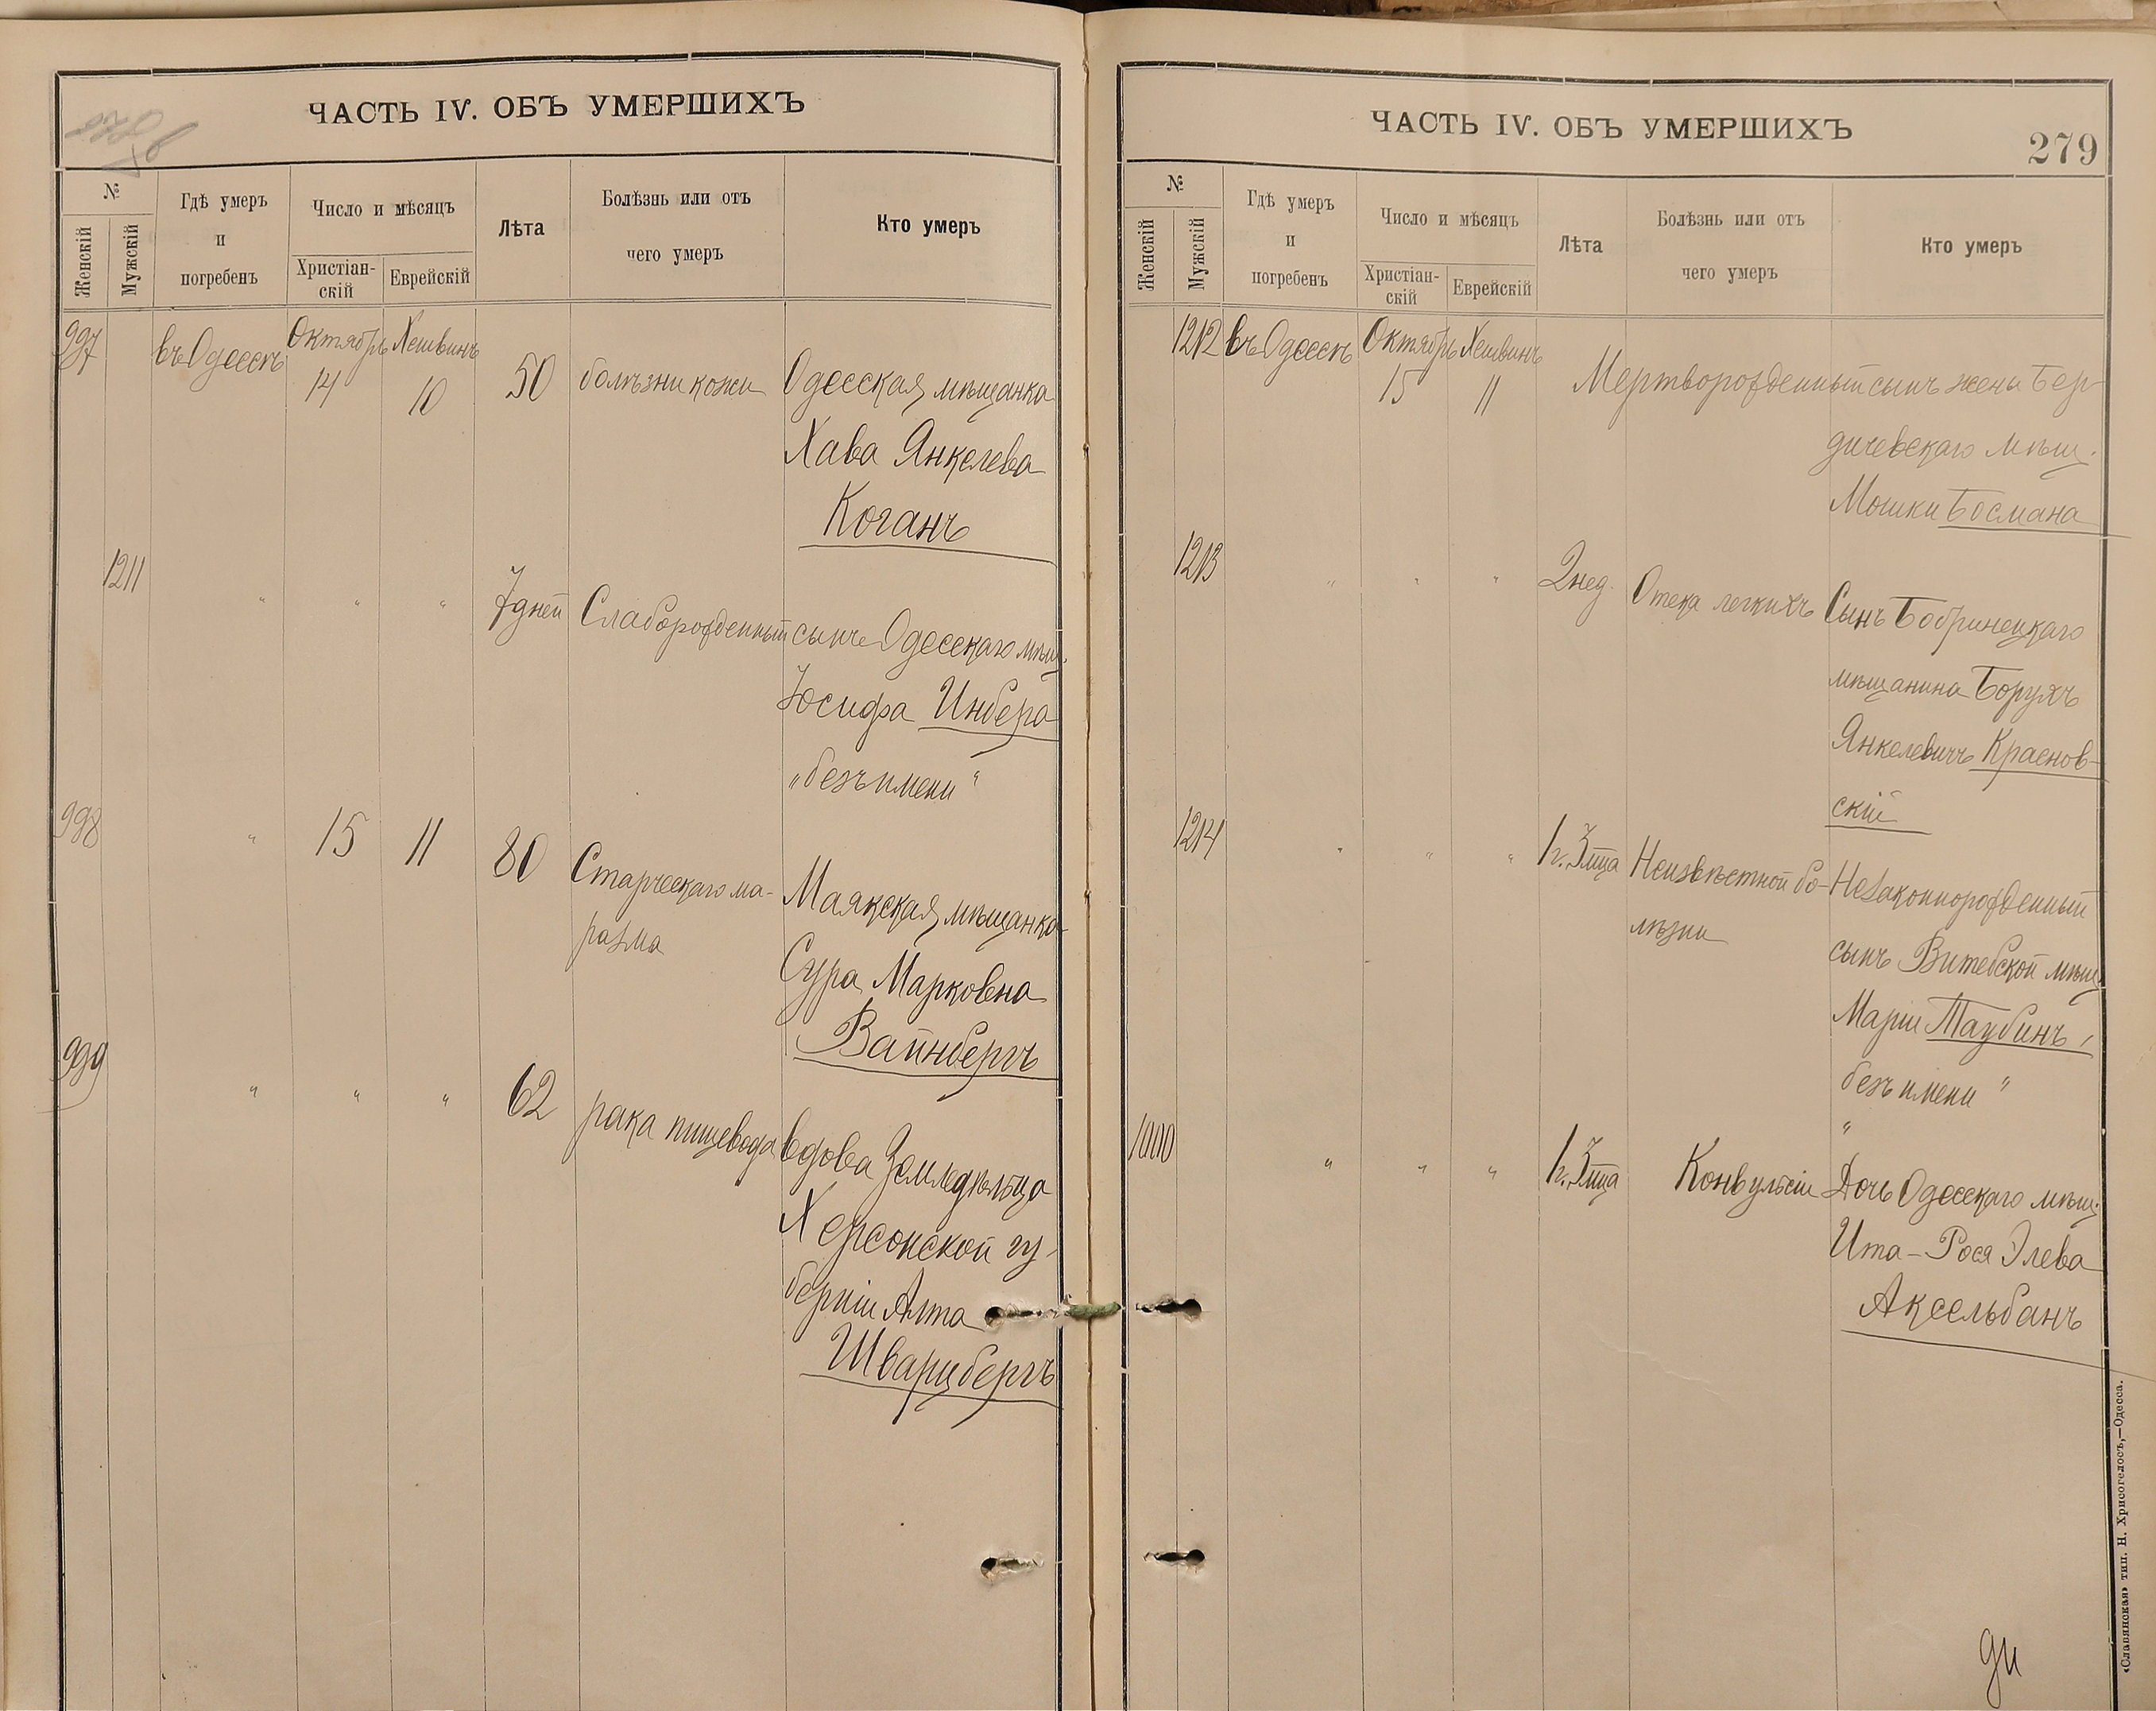 ЧАСТЬ IV. ОБЪ УМЕРШИХЪ
№
Женскій
Мужскій
Гдѣ умеръ
и
погребенъ
Число и мѣсяцъ
Христіан-
скій
Еврейскій
Лѣта
Болѣзнь или отъ
чего умеръ
Кто умеръ
997 въ Одессѣ Октябрь 14 Хешвинъ 10 50 болѣзни кожи Одесская мѣщанка
Хава Янкелева
Коганъ
1211 " " " 7 дней Слаборожденный сынъ Одесскаго мѣщ.
Іосифа Инбера
„безъ имени“
998 " 15 11 80 Старческаго ма- Маякская мѣщанка
разма
Сура Марковна
Вайнбергъ
999 " " " 62 рака пищевода вдова Земледѣльца
Херсонской гу-
берніи Алта
Шварцбергъ
ЧАСТЬ IV. ОБЪ УМЕРШИХЪ
279
№
Женскій
Мужскій
Гдѣ умеръ
и
погребенъ
Число и мѣсяцъ
Христіан-
скій
Еврейскій
Лѣта
Болѣзнь или отъ
чего умеръ
Кто умеръ
1212 въ Одессѣ Октябрь 15 Хешвинъ 11 Мертворожденный сынъ жены Бер-
дичевскаго мѣщ.
Мошки Босмана
1213 " " " 2 нед. Отека легкихъ Сынъ Бобринецкаго
мѣщанина Борухъ
Янкелевичъ Краснов-
скій
1214 " " " 1 г. 3 мца Неизвѣстной бо- Незаконнорожденный
лѣзни
сынъ Витебской мѣщ.
Маріи Таубинъ,
безъ имени “
„
1000 " " " 1 г. 3 мца Конвульсіи Дочь Одесскаго мѣщ.
Ита-Рося Элева
Аксельбанъ
«Славянская» тип. Н. Хрисогелосъ,—Одесса.